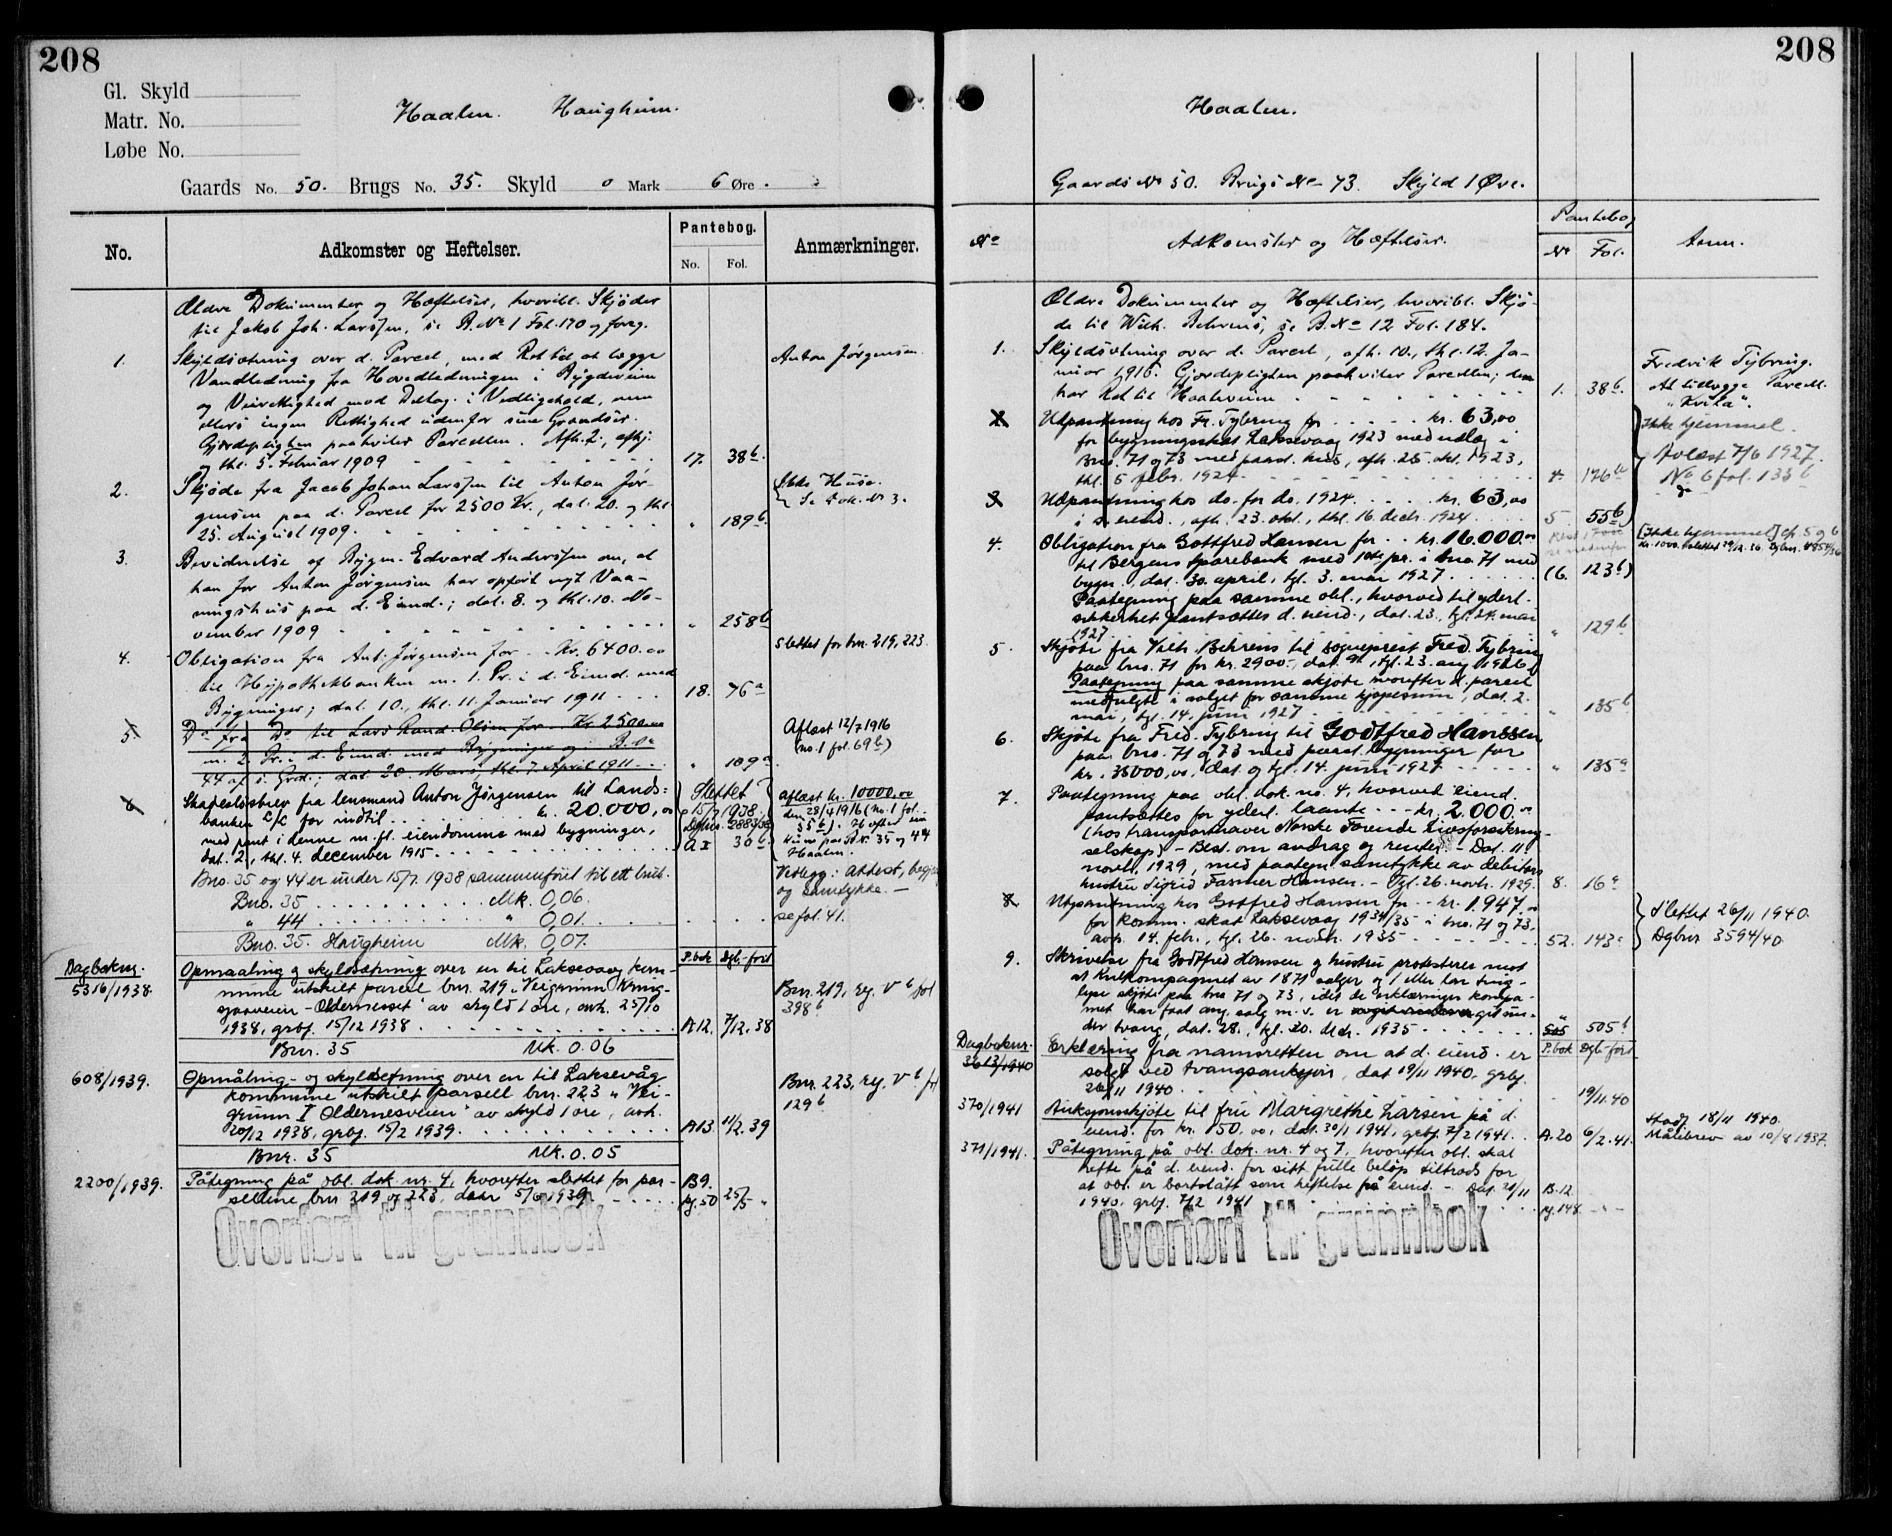 208
Gl. Skyld
Matr. No.
Løbe No.
Haalen. Haugheim.
Gaards No. 50. Brugs No. 35. Skyld 0 Mark 6 Øre.
No.
Adkomster og Heftelser.
Pantebog.
No. Fol.
Anmærkninger.
Ældre Dokumenter og Hæftelser, hvoribl. Skjøder
til Jakob Joh. Larssen, se B. No 1 Fol. 170 og foreg.
1. Skyldsætning over d. Parcel, med Ret til at lægge Anton Jørgensen
Vandledning fra Hovedledningen i Bygdeveien
og Veirettighed mod Deltag. i Vedligehold, men
ellers ingen Rettighed udenfor sine Grændser.
Gjærdepligten paahviler Parcellen. Afh. 2., afhj.
og thl. 5. Februar 1909 17. 38b.
2. Skjøde fra Jacob Johan Larssen til Anton Jør- Ikke Huse.
gensen paa d. Parcel for 2500 Kr., dat. 20. og thl. Se Dok. No 3.
25. August 1909. " 189b.
3. Bevidnelse af Bygm. Edvard Anderssen om, at
han for Anton Jørgensen har opført nyt Vaa-
ningshus paa d. Eiend.; dat. 8. og thl. 10. No-
vember 1909 " 258b
4. Obligation fra Ant. Jørgensen for Kr. 6400.00 slettet for bnr. 219, 223.
til Hypothekbanken m. 1. Pr. i d. Eiend. med
Bygninger; dat. 10., thl. 11. Januar 1911 18. 76a
5 Do fra Do til Lars Rand. Olsen for Kr. 2500.00 Aflæst 12/7 1916
m. 2. Pr. i d. Eiend. med Bygninger og i B. No (no. 1 fol. 69b)
44 af s. Grd.; dat. 20. Mars, thl. 7. April 1911 " 109a.
6 Skadesløsbrev fra lensmand Anton Jørgensen til Lands= Slettet aflæst kr. 10000.00
banken c/c for indtil kr. 20.000,00 15/7 1938. den 28/4 1916 (no. 1 fol.
med pant i denne m. fl. eiendomme med bygninger,
dat. 2., thl. 4. december 1915. Haalen.
Bno. 35 og 44 er under 15/7. 1938 sammenføiet til ett bruk. Vedlegg: Attest,
Bno. 35 Mk. 0,06. og samtykke. —
" 44 " 0,01. se fol. 41.
Bno. 35. Haugheim Mk. 0,07.
P.bok Dgb.-ført
Dagboknr.
5316/1938. Opmaaling og skyldsætning over en til Laksevaag kom-
mune utskilt parcel bnr. 219 „Veigrunn Kring- Bnr. 219, reg. Vb fol
sjaaveien - Oldernesset" av skyld 1 øre, avh. 25/10 398b
1938, grbf. 15/12 1938. A12. 7/12.38
Bnr. 35 Mk. 0.06
608/1939. Opmåling- og skyldsetning over en til Laksevåg Bnr. 223, reg. Vb fol
kommune utskilt parsell bnr. 223 „Vei- 129b
grunn I Oldernesveien" av skyld 1 øre, avh.
20/12 1938, grbf. 15/2 1939. A13 11/2.39
Bnr. 35 Mk. 0.05
2200/1939. Påtegning på obl. dok. nr. 4, hvorefter slettet for par- B9.
sellene bnr 219 og 223, datr 5/6 1939 pg. 50 25/5 "
Overført til grunnbok
208
Haalen.
Gaards No 50. Brugs No 73. Skyld 1 Øre.
No
Adkomster og Hæftelser.
Pantebog
No Fol.
Anm.
Ældre Dokumenter og Hæftelser, hvoribl. Skjø-
de til Wilh. Behrens, se B. No 12 Fol. 184.
1. Skyldsætning over d. Parcel, afh. 10., thl. 12. Ja- Fredrik Tybring.
nuar 1916. Gjærdepligten paahviler Parcellen; den At tillægge Parcell.
har Ret til Haalveien 1. 38b. "Kvila".
2 Utpantning hos Fr. Tybring for kr. 63,00 Ikke hjemmel.
for bygningsskat Laksevaag 1923 med utlæg i Avlæst 7/6 1927.
Bno. 71 og 73 med paast. hus, afh. 25. okt. 1923, No 6 fol. 133b
thl. 5 febr. 1924 4. 176b
3 Utpantning hos do. for do. 1924 kr. 63,00 do
i s. eiend., afh. 23. okt., thl. 16. decbr. 1924 5 55b
4. Obligation fra Gottfred Hansen for kr. 16.000.00 [Ikke hjemmel] cfr. 5 og 6
til Bergens Sparebank med 1ste pr. i bno. 71 med
bygn., dat. 30. april, tgl. 3. mai 1927 (6. 123b)
Paategning paa samme obl., hvorved til yderl.
sikkerhet pantsættes d. eiend., dat. 23., tgl. 24. mai
1927. " 129b
5. Skjøte fra Valb. Behrens til sogneprest Fred. Tybring
paa bno. 71 for kr. 2900.-, dat. 9., tgl. 23. aug. 1926,
Paategning paa samme skjøte hvorefter d. parcel
medfulgte i salget for samme kjøpesum, dat. 2.
mai, tgl. 14. juni 1927 " 135b
6. Skjøte fra Fred. Tybring til Godtfred Hanssen
paa bno. 71 og 73 med paast. bygninger for
kr. 35000,00, dat. og tgl. 14. juni 1927 " 135a
7. Paategning paa obl. dok. no. 4, hvorved eiend.
pantsættes for yderl. laante kr. 2.000.00
(hos transporthaver Norske Forende Livsforsikring-
selskap) - Best. om avdrag og renter - Dat. 11
novbr. 1929, med paategn. samtykke av debitors
hustru Sigrid Farmer Hansen. - Tgl. 26. novbr. 1929. 8. 16a
8 Utpantning hos Gotfred Hansen for kr. 1.947.00 Slettet 26/11 1940.
for komm. skat Laksevaag 1934/35 i bno. 71 og 73, Dgbnr 3594/40.
avh. 14. febr., tgl. 26. novbr. 1935 52. 143a
9. Skrivelse fra Godtfred Hansen og hustru protesterer mot
at Kulkompagniet av 1871 selger og / eller har ting-
lyse skjøte paa bno 71 og 73, idet de erklæringer kompa-
niet har faat ang. salg m. v. er avgit un-
der tvang, dat. 28., tgl. 30. decbr. 1935 505b
Dagboknr. P.bok Dgb.-ført
3613/1940 Erklæring fra namsretten om at d. eiend. er
solgt ved tvangsauksjon, dat 19/11 1940. grbf.
20/11 1940 19/11.40
370/1941 Auksjonsskjøte til fru Margrethe Larsen på d. Stadf. 18/11 1940.
eiend. for kr. 150.00, dat. 30/1 1941, grbf. 7/2 1941. A.20 6/2.41. Målebrev av 10/8 1937.
371/1941. Påtegning på obl. dok. nr. 4 og 7, hvorefter obl. skal
hefte på d. eiend. for sitt fulle beløp tiltrods for
at obl. er bortslått som heftelse på eiend. - Dat. 21/11 B.12
1940, grbf. 7/2 1941 pg. 148 - " -
Overført til grunnbok